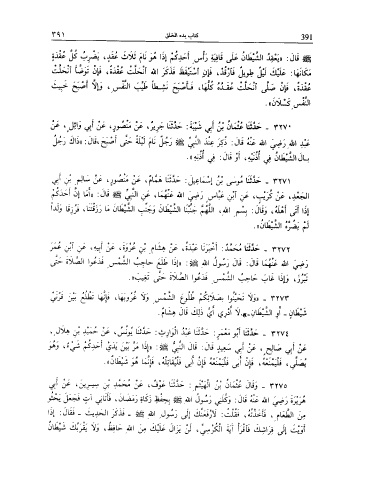 ٣٩١ كتاب بدء الخلق 391
ﷺ قَالَ: «يَعْقِدُ الشَّيْطَانُ عَلَى قَافِيَةِ رَأْسِ أَحَدِكُمْ إِذَا هُوَ نَامَ ثَلَاثَ عُقَدٍ، يَضْرِبُ كُلَّ عُقْدَةٍ
مَكَانَهَا: عَلَيْكَ لَيْلٌ طَوِيلٌ فَارْقُدْ، فَإِنِ اسْتَيْقَظَ فَذَكَرَ اللهَ انْحَلَّتْ عُقْدَةٌ، فَإِنْ تَوَضَّأَ انْحَلَّتْ
عُقْدَةٌ، فَإِنْ صَلَّى انْحَلَّتْ عُقَدُهُ كُلُّهَا، فَأَصْبَحَ نَشِيطًا طَيِّبَ النَّفْسِ، وَإِلَّا أَصْبَحَ خَبِيثَ
النَّفْسِ كَسْلَانَ».
٣٢٧٠ - حَدَّثَنَا عُثْمَانُ بْنُ أَبِي شَيْبَةَ: حَدَّثَنَا جَرِيرٌ، عَنْ مَنْصُورٍ، عَنْ أَبِي وَائِلٍ، عَنْ
عَبْدِ اللهِ رَضِيَ اللهُ عَنْهُ قَالَ: ذُكِرَ عِنْدَ النَّبِيِّ ﷺ رَجُلٌ نَامَ لَيْلَةً حَتَّى أَصْبَحَ، قَالَ: «ذَاكَ رَجُلٌ
بَالَ الشَّيْطَانُ فِي أُذُنَيْهِ، أَوْ قَالَ: فِي أُذُنِهِ».
٣٢٧١ - حَدَّثَنَا مُوسَى بْنُ إِسْمَاعِيلَ: حَدَّثَنَا هَمَّامٌ، عَنْ مَنْصُورٍ، عَنْ سَالِمِ بْنِ أَبِي
الجَعْدِ، عَنْ كُرَيْبٍ، عَنِ ابْنِ عَبَّاسٍ رَضِيَ اللهُ عَنْهُمَا، عَنِ النَّبِيِّ ﷺ قَالَ: «أَمَا إِنَّ أَحَدَكُمْ
إِذَا أَتَى أَهْلَهُ، وَقَالَ: بِسْمِ اللهِ، اللَّهُمَّ جَنِّبْنَا الشَّيْطَانَ وَجَنِّبِ الشَّيْطَانَ مَا رَزَقْتَنَا، فَرُزِقَا وَلَدًا
لَمْ يَضُرَّهُ الشَّيْطَانُ».
٣٢٧٢ - حَدَّثَنَا مُحَمَّدٌ: أَخْبَرَنَا عَبْدَةُ، عَنْ هِشَامِ بْنِ عُرْوَةَ، عَنْ أَبِيهِ، عَنِ ابْنِ عُمَرَ
رَضِيَ اللهُ عَنْهُمَا قَالَ: قَالَ رَسُولُ اللهِ ﷺ: «إِذَا طَلَعَ حَاجِبُ الشَّمْسِ فَدَعُوا الصَّلَاةَ حَتَّى
تَبْرُزَ، وَإِذَا غَابَ حَاجِبُ الشَّمْسِ فَدَعُوا الصَّلَاةَ حَتَّى تَغِيبَ».
٣٢٧٣ - «وَلَا تَحَيَّنُوا بِصَلَاتِكُمْ طُلُوعَ الشَّمْسِ وَلَا غُرُوبَهَا، فَإِنَّهَا تَطْلُعُ بَيْنَ قَرْنَيْ
شَيْطَانٍ - أَوِ الشَّيْطَانِ»، لَا أَدْرِي أَيَّ ذَلِكَ قَالَ هِشَامٌ.
٣٢٧٤ - حَدَّثَنَا أَبُو مَعْمَرٍ: حَدَّثَنَا عَبْدُ الْوَارِثِ: حَدَّثَنَا يُونُسُ، عَنْ حُمَيْدِ بْنِ هِلَالٍ،
عَنْ أَبِي صَالِحٍ، عَنْ أَبِي سَعِيدٍ قَالَ: قَالَ النَّبِيُّ ﷺ: «إِذَا مَرَّ بَيْنَ يَدَيْ أَحَدِكُمْ شَيْءٌ، وَهُوَ
يُصَلِّي، فَلْيَمْنَعْهُ، فَإِنْ أَبَى فَلْيَمْنَعْهُ فَإِنْ أَبَى فَلْيُقَاتِلْهُ، فَإِنَّمَا هُوَ شَيْطَانٌ».
٣٢٧٥ - وَقَالَ عُثْمَانُ بْنُ الْهَيْثَمِ: حَدَّثَنَا عَوْفٌ، عَنْ مُحَمَّدِ بْنِ سِيرِينَ، عَنْ أَبِي
هُرَيْرَةَ رَضِيَ اللهُ عَنْهُ قَالَ: وَكَّلَنِي رَسُولُ اللهِ ﷺ بِحِفْظِ زَكَاةِ رَمَضَانَ، فَأَتَانِي آتٍ فَجَعَلَ يَحْثُو
مِنَ الطَّعَامِ، فَأَخَذْتُهُ، فَقُلْتُ: لَأَرْفَعَنَّكَ إِلَى رَسُولِ اللهِ ﷺ - فَذَكَرَ الْحَدِيثَ - فَقَالَ: إِذَا
أَوَيْتَ إِلَى فِرَاشِكَ فَاقْرَأْ آيَةَ الْكُرْسِيِّ، لَنْ يَزَالَ عَلَيْكَ مِنَ اللهِ حَافِظٌ، وَلَا يَقْرَبُكَ شَيْطَانٌ